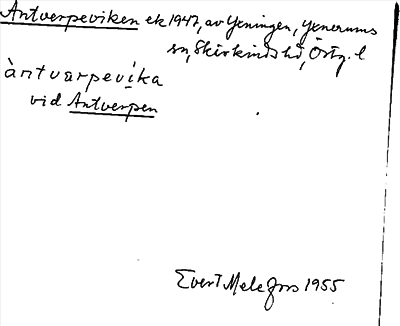 Antverpeviken ek 1947, av Yxningen, Yxnerums
sn, Skärkinds hd, Östg. l
àntvarpevíka
vid Antverpen
Evert Melefors 1955